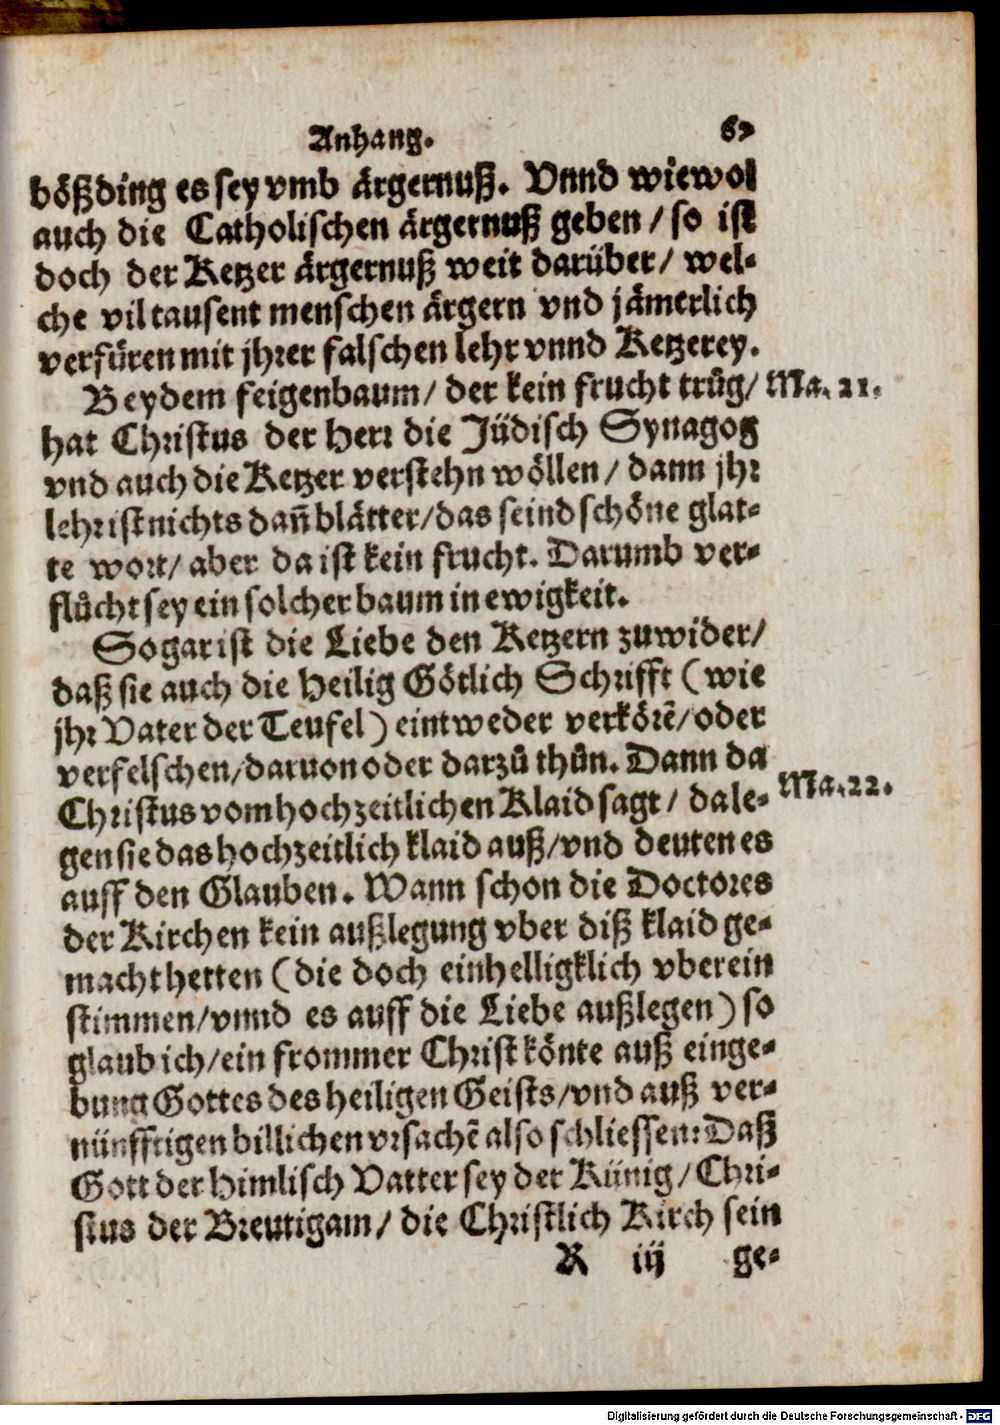 Anhang. 67
bößding es sey vmb ärgernuß. Vnnd wiewol
auch die Catholischen ärgernuß geben / so ist
doch der Ketzer ärgernuß weit darüber / wel-
che vil tausent menschen ärgern vnd jämerlich
verfüren mit jhrer falschen lehr vnnd Ketzerey.
Bey dem feigenbaum / der kein frucht trůg / Ma. 21.
hat Christus der Herr die Jüdisch Synagog
vnd auch die Ketzer verstehn wöllen / dann jhr
lehr ist nichts dañ blätter / das seind schöne glat-
te wort / aber da ist kein frucht. Darumb ver-
flůcht sey ein solcher baum in ewigkeit.
So gar ist die Liebe den Ketzern zuwider /
daß sie auch die Heilig Götlich Schrifft (wie
jhr Vater der Teufel) eintweder verkörẽ / oder
verfelschen / daruon oder darzů thůn. Dann da
Christus vom hochzeitlichen Klaid sagt / da le- Ma. 22.
gen sie das hochzeitlich klaid auß / vnd deuten es
auff den Glauben. Wann schon die Doctores
der Kirchen kein außlegung vber diß klaid ge-
macht hetten (die doch einhelligklich vberein
stimmen / vnnd es auff die Liebe außlegen) so
glaub ich / ein frommer Christ könte auß einge-
bung Gottes des heiligen Geists / vnd auß ver-
nünfftigen billichen vrsachẽ also schliessen: Daß
Gott der Himlisch Vatter sey der Künig / Chri-
stus der Breutigam / die Christlich Kirch sein
K iij ge-
Digitalisierung gefördert durch die Deutsche Forschungsgemeinschaft - DFG